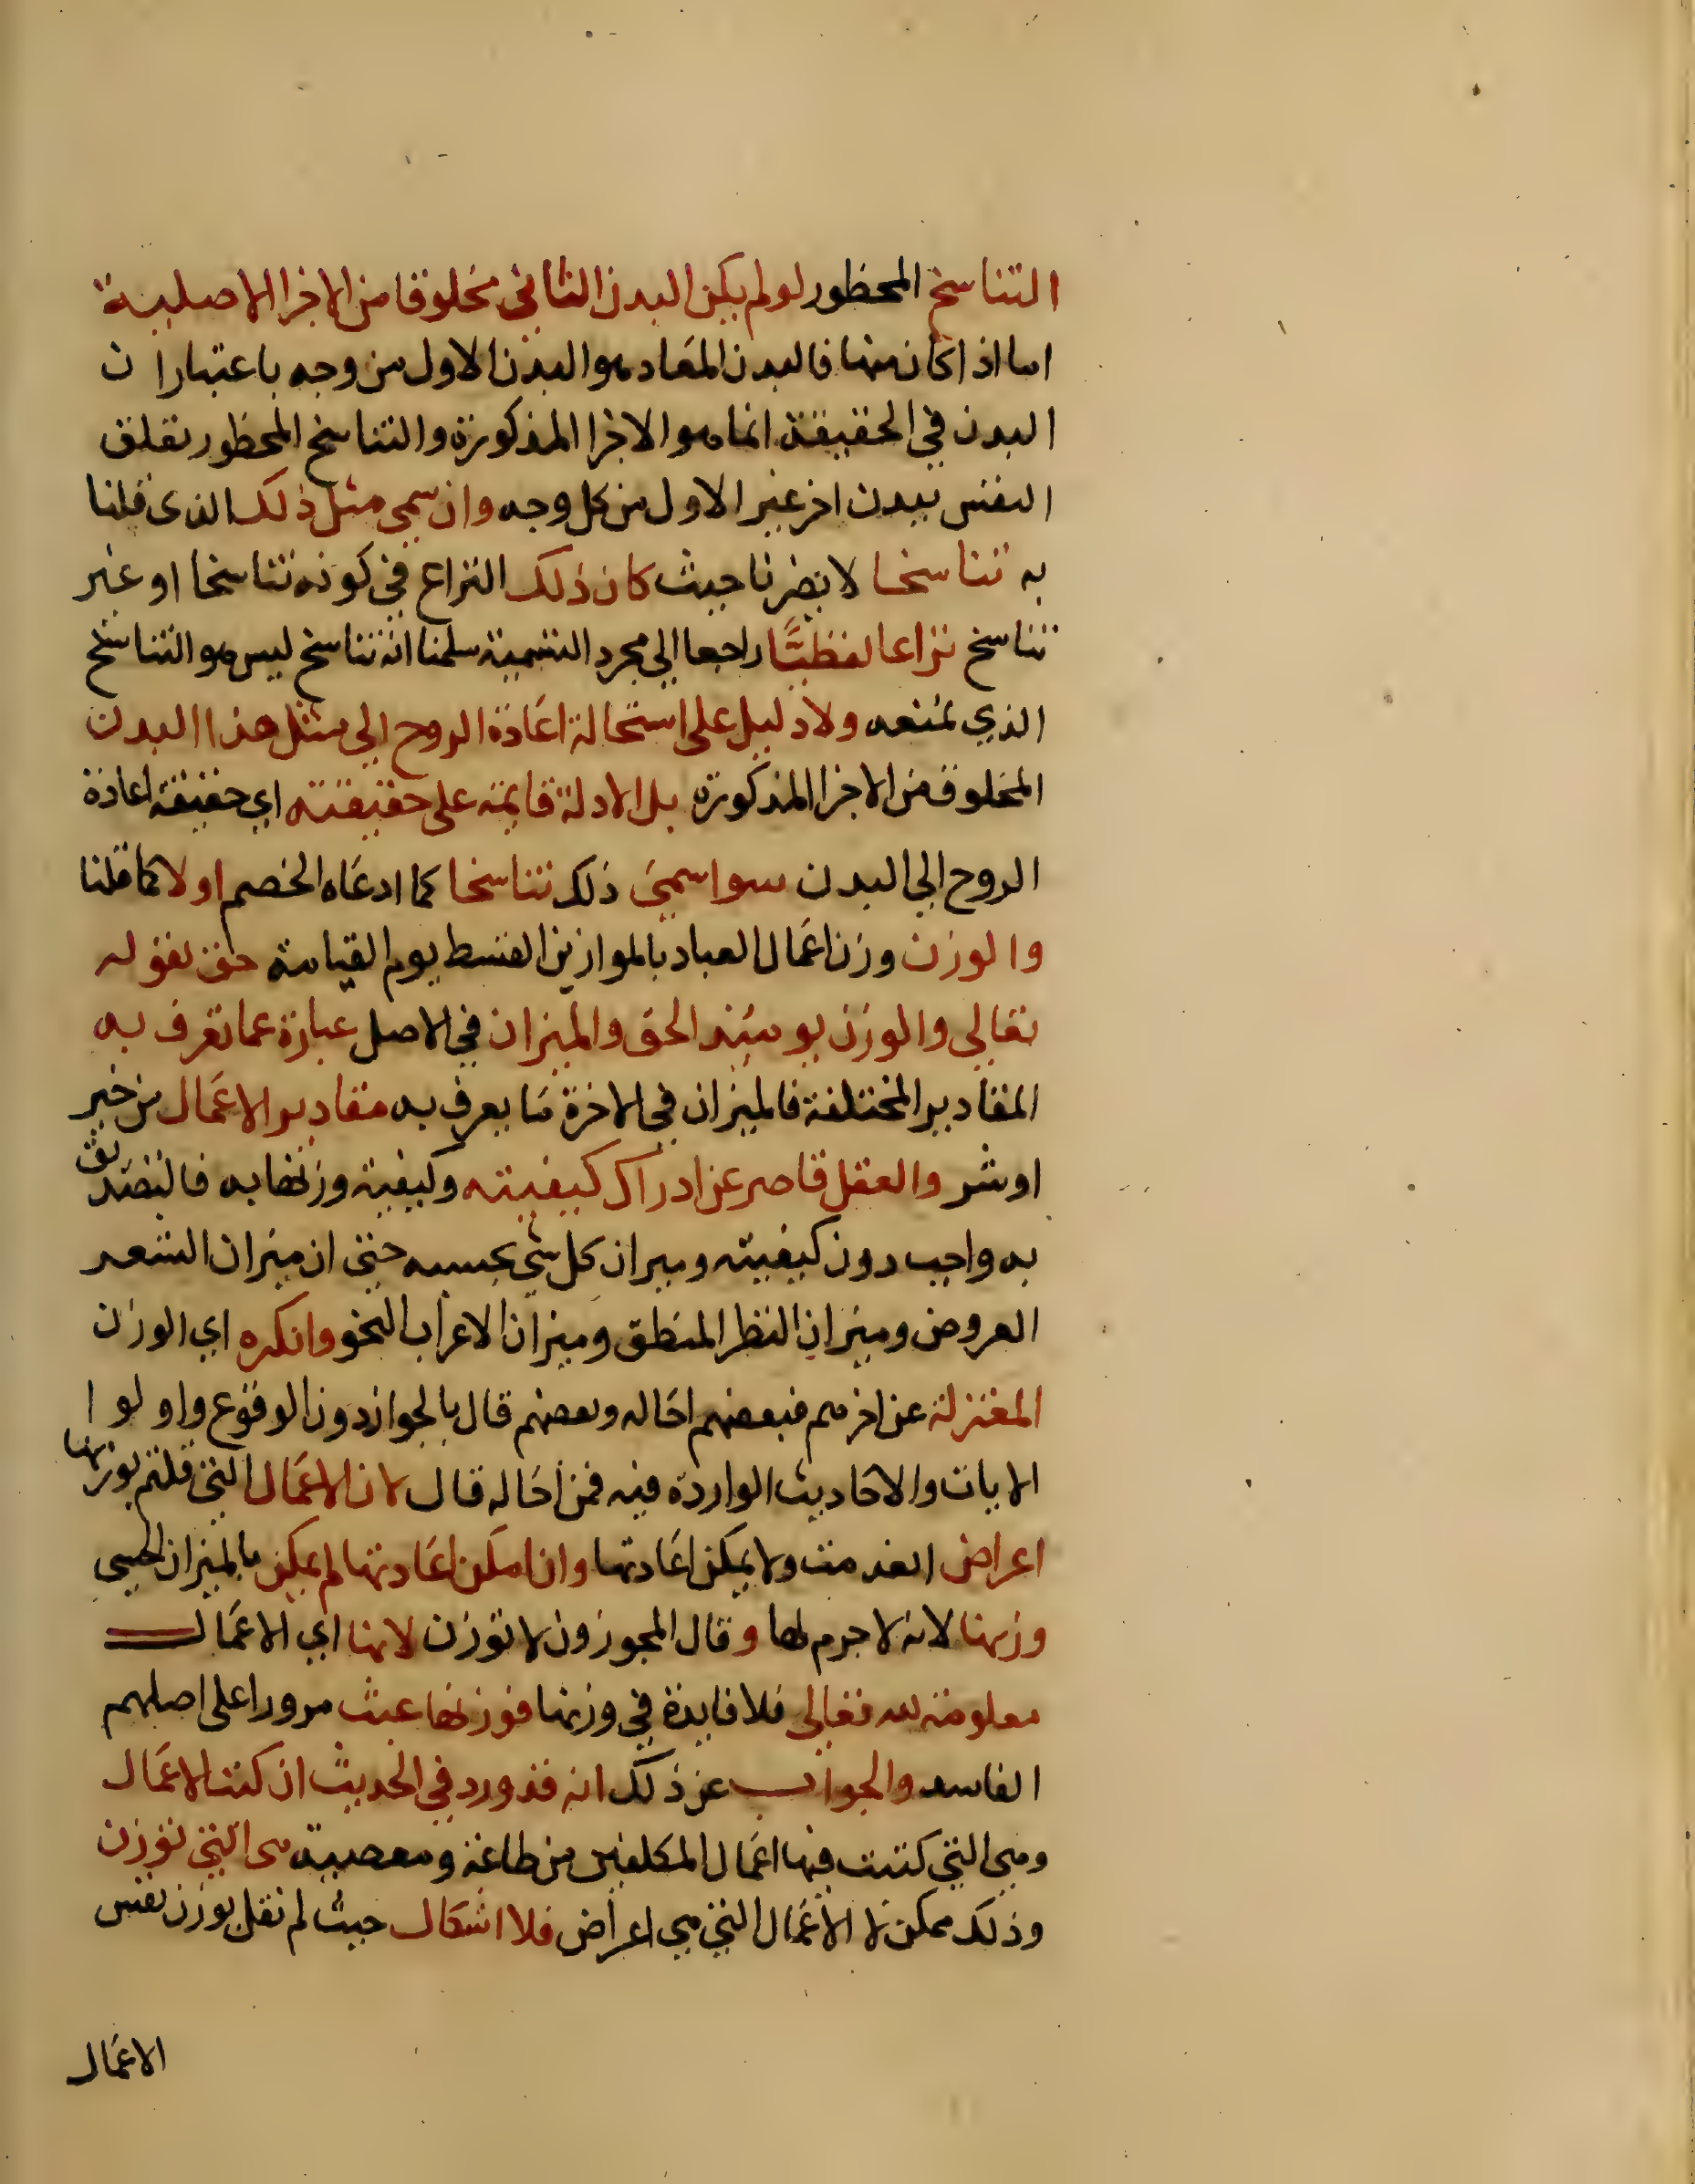 التناسخ المحظور لو لم يكن البدن الثاني مخلوقا من الاجزا الاصلية
اما اذا كان منها فالبدن المعاد هو البدن الاول من وجه باعتبار ان
البدن في الحقيقة انما هو الاجزا المذكورة والتناسخ المحظور تعلق
النفس ببدن اخر غير الاول من كل وجه وان سمي مثل ذلك الذي قلنا
به تناسخا لا يضرنا حيث كان ذلك النزاع في كونه تناسخا او غير
تناسخ نزاعا لفظيًّا راجعا الي مجرد التسمية سلمنا انه تناسخ ليس هو التناسخ
الذي نمنعه ولا دليل على استحالة اعادة الروح الي مثل هذا البدن
المخلوق من الاجزا المذكورة بل الادلة قايمة على حقيقته اي حقيقة اعادة
الروح الي البدن سوا سمي ذلك تناسخا كما ادعاه الخصم او لا كما قلنا
والوزن وزن اعمال العباد بالموازين القسط يوم القيامة حق لقوله
تعالي والوزن يوميئذ الحق والميزان في الاصل عبارة عما تعرف به
المقادير المختلفة فالميزان في الاخرة ما يعرف به مقادير الاعمال من خير
او شر والعقل قاصر عن ادراك كيفيته وكيفية وزنها به فالتصديق
به واجب دون كيفيته وميزان كل شي بحسبه حتي ان ميزان الشعر
العروض وميزان النظر المنطق وميزان الاعراب النحو وانكره اي الوزن
المعتزلة عن اخرهم فبعضهم احاله وبعضهم قال بالجواز دون الوقوع واولوا
الايات والاحاديث الواردة فيه فمن احاله قال لان الاعمال التي قلتم بوزنها
اعراض انعدمت ولا يمكن اعادتها وان امكن اعادتها لم يمكن بالميزان الحسي
وزنها لانه لا جرم لها وقال المجوزون لا توزن لانها اي الاعمال
معلومة لله تعالي فلا فايدة في وزنها فوزنها عبث مرورا على اصلهم
الفاسد والجواب عن ذلك انه قد ورد في الحديث ان كتب الاعمال
وهي التي كتبت فيها اعمال المكلفين من طاعة ومعصية هي التي توزن
وذلك ممكن لا الاعمال التي هي اعراض فلا اشكال حيث لم نقل بوزن نفس
الاعمال